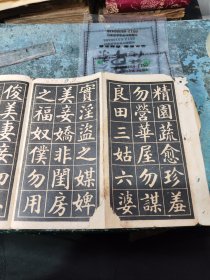 精園蔬愈珍羞
勿營華屋勿謀
良田三姑六婆
實淫盜之媒婢
美妾嬌非閨房
之福奴僕勿用
俊美妻妾切